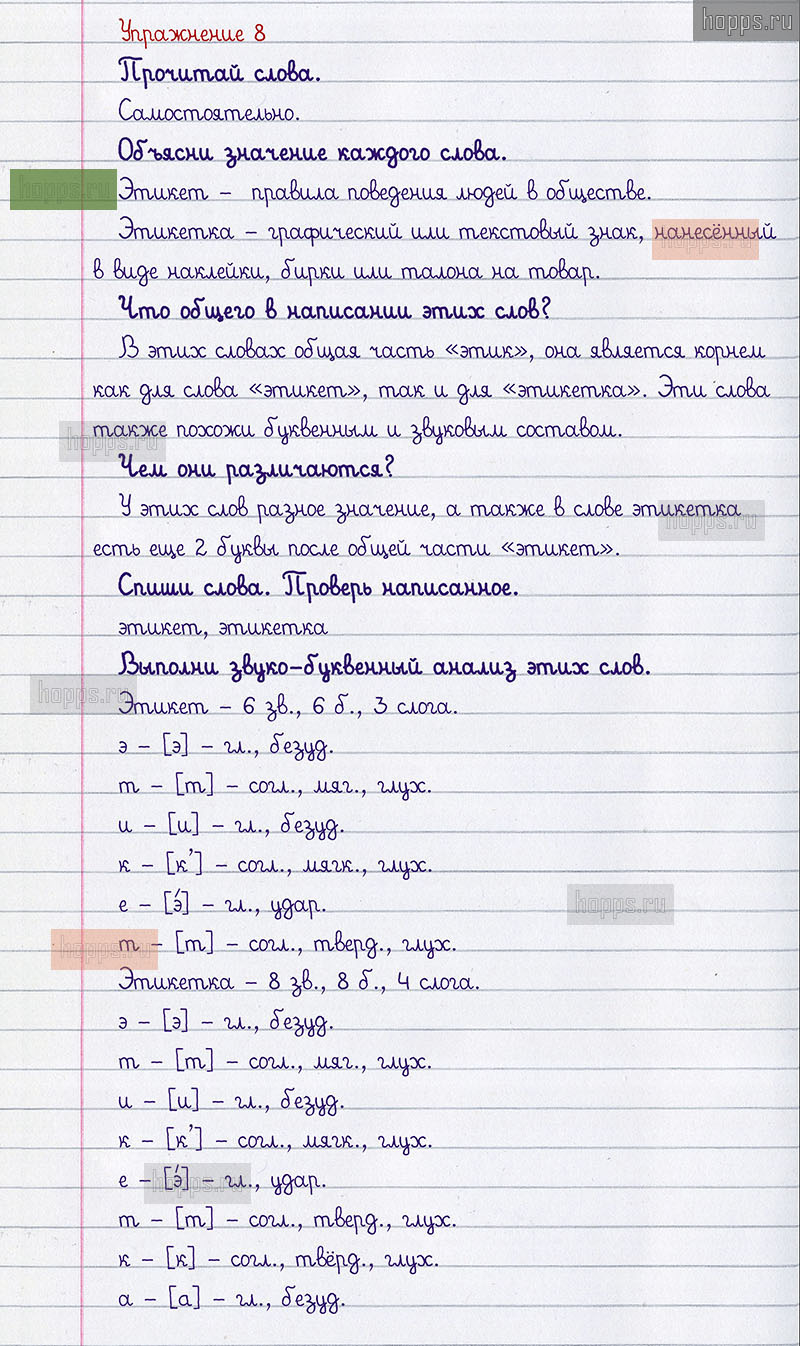 hopps.ru
Упражнение 8
Прочитай слова.
Самостоятельно.
Объясни значение каждого слова.
hopps.ru
Этикет – правила поведения людей в обществе.
Этикетка – графический или текстовый знак, нанесённый
hopps.ru
в виде наклейки, бирки или талона на товар.
Что общего в написании этих слов?
В этих словах общая часть «этик», она является корнем
как для слова «этикет», так и для «этикетка». Эти слова
также похожи буквенным и звуковым составом.
hopps.ru
Чем они различаются?
У этих слов разное значение, а также в слове этикетка
hopps.ru
есть еще 2 буквы после общей части «этикет».
Спиши слова. Проверь написанное.
этикет, этикетка
Выполни звуко-буквенный анализ этих слов.
hopps.ru
Этикет – 6 зв., 6 б., 3 слога.
э – [э] – гл., безуд.
т – [т] – согл., мяг., глух.
и – [и] – гл., безуд.
к – [к’] – согл., мягк., глух.
е – [э́] – гл., удар.
hopps.ru
т – [т] – согл., тверд., глух.
hopps.ru
Этикетка – 8 зв., 8 б., 4 слога.
э – [э] – гл., безуд.
т – [т] – согл., мяг., глух.
и – [и] – гл., безуд.
к – [к’] – согл., мягк., глух.
е – [э́] – гл., удар.
hopps.ru
т – [т] – согл., тверд., глух.
к – [к] – согл., твёрд., глух.
а – [а] – гл., безуд.